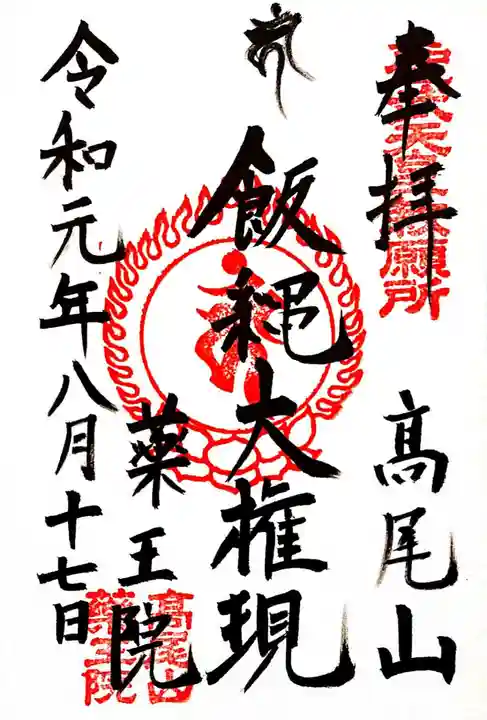 奉拝
高尾山
飯縄大権現
薬王院
令和元年八月十七日
高尾山
薬王院